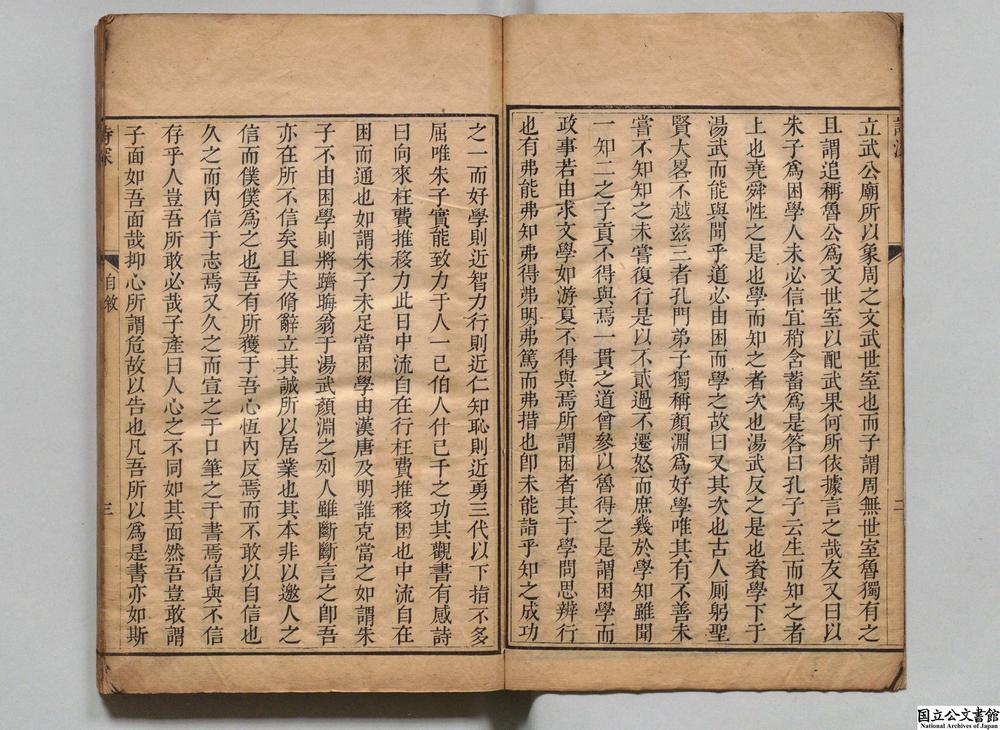 立武公廟所以象周之文武世室也而子謂周無世室魯獨有之
且謂追稱魯公爲文世室以配武果何所依據言之哉友又曰以
朱子爲困學人未必信宜稍含蓄爲是答曰孔子云生而知之者
上也堯舜性之是也學而知之者次也湯武反之是也夽學下于
湯武而能與聞乎道必由困而學之故曰又其次也古人厠躬聖
賢大畧不越玆三者孔門弟子獨稱顏淵爲好學唯其有不善未
嘗不知知之未嘗復行是以不貳過不遷怒而庶幾於學知雖聞
一知二之子貢不得與焉一貫之道曾參以魯得之是謂困學而
政事若由求文學如游夏不得與焉所謂困者其于學問思辨行
也有弗能弗知弗得弗明弗篤而弗措也卽未能詣乎知之成功
之一而好學則近智力行則近仁知恥則近勇三代以下指不多
屈唯朱子實能致力于人一已伯人什已千之功其觀書有感詩
曰向來枉費推移力此日中流自在行枉費推移困也中流自在
困而通也如謂朱子未足當困學由漢唐及明誰克當之如謂朱
子不由困學則將躋晦翁于湯武顏淵之列人雖斷斷言之卽吾
亦在所不信矣且夫脩辭立其誠所以居業也其本非以邀人之
信而僕僕爲之也吾有所獲于吾心恆內反焉而不敢以自信也
久之而內信于志焉又久之而宣之于口筆之于書焉信與不信
存乎人豈吾所敢必哉子產曰人心之不同如其面然吾豈敢謂
子面如吾面哉抑心所謂危故以告也凡吾所以爲是書亦如斯
詩深
自敘
三
国立公文書館
National Archives of Japan